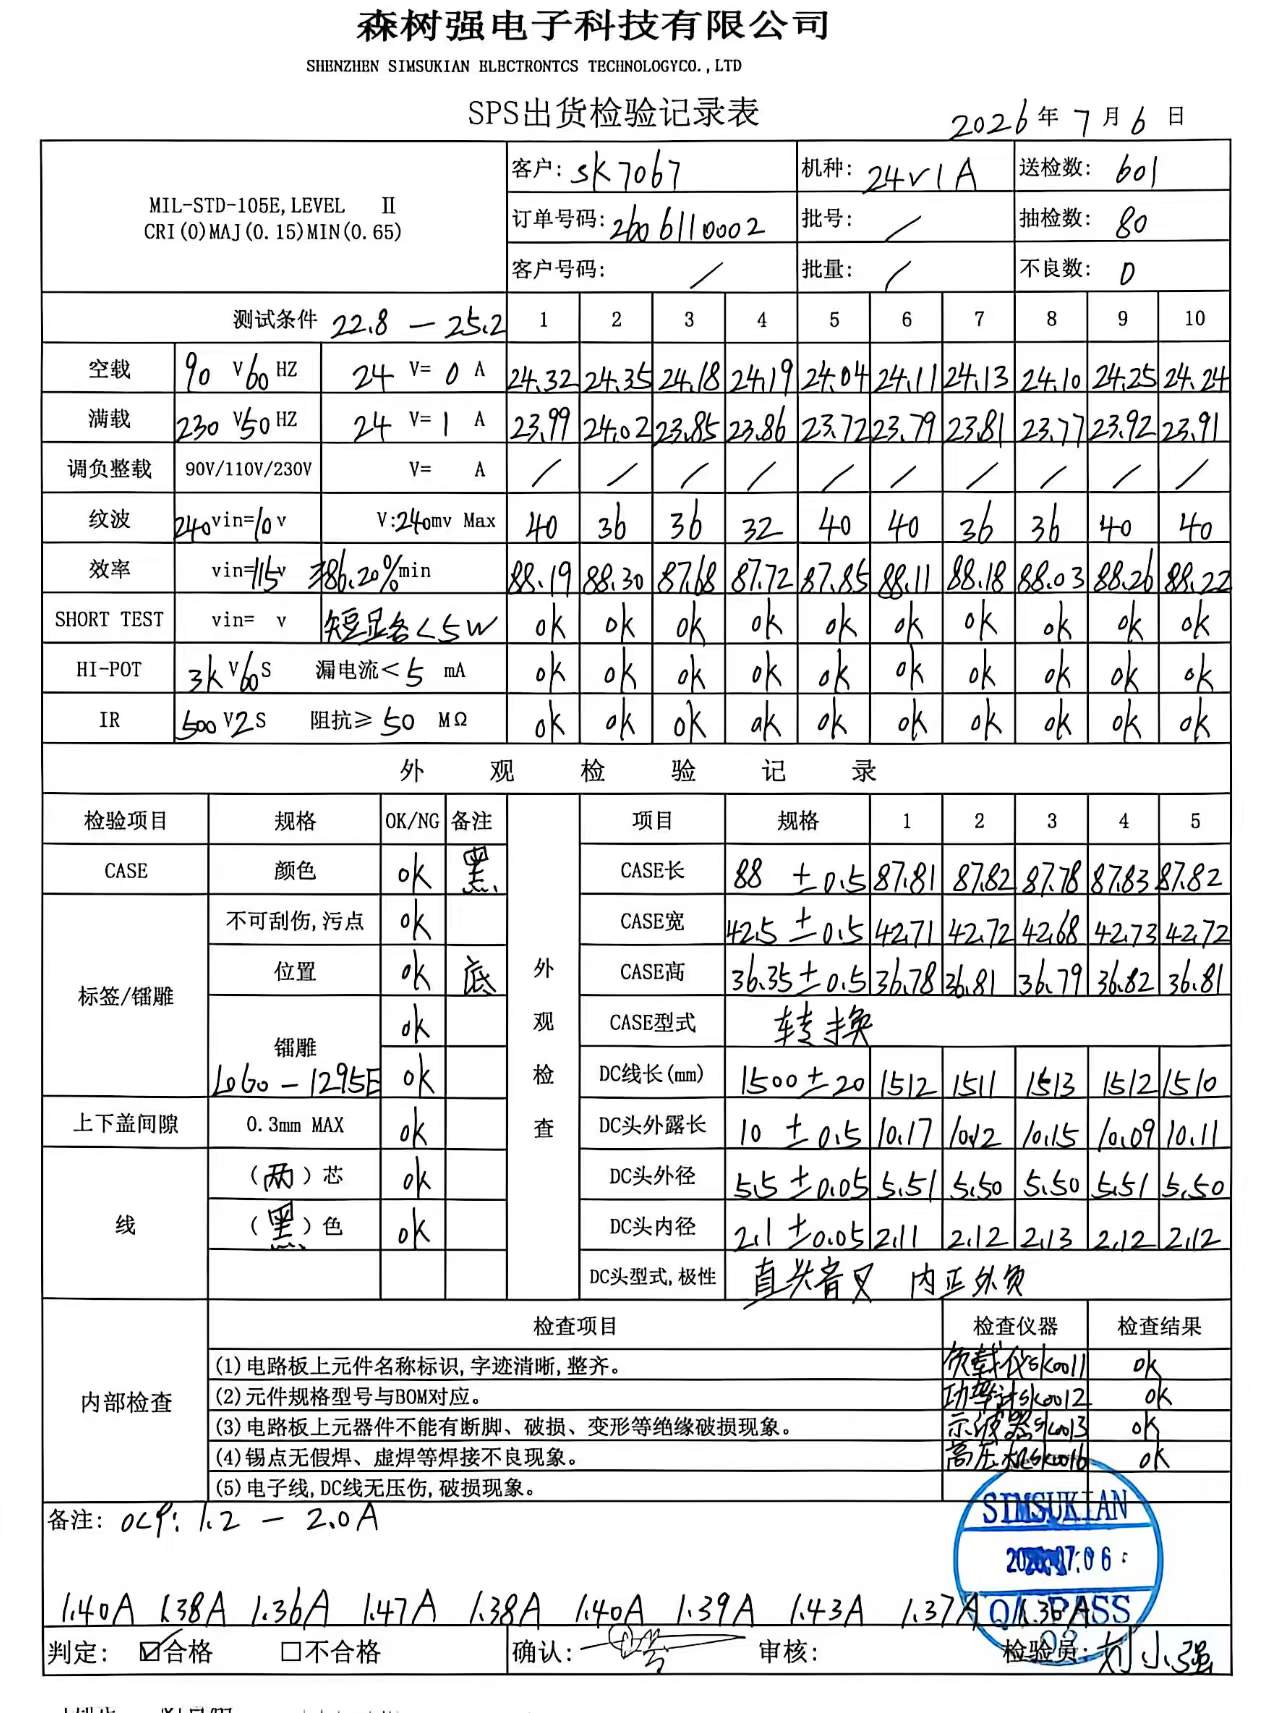 森树强电子科技有限公司
SHENZHEN SIMSUKIAN ELECTRONTCS TECHNOLOGYCO.,LTD
SPS出货检验记录表
2026年7月6日
MIL-STD-105E,LEVEL Ⅱ
CRI(0)MAJ(0.15)MIN(0.65)
客户: SK7067 机种: 24V1A 送检数: 601
订单号码: 2606110002 批号: / 抽检数: 80
客户号码: / 批量: / 不良数: 0
测试条件 22.8 — 25.2 1 2 3 4 5 6 7 8 9 10
空载 90 V 60 HZ 24 V= 0 A 24.32 24.35 24.18 24.19 24.04 24.11 24.13 24.10 24.25 24.24
满载 230 V 50 HZ 24 V= 1 A 23.99 24.02 23.85 23.86 23.72 23.79 23.81 23.77 23.92 23.91
调负整载 90V/110V/230V V= A / / / / / / / / / /
纹波 240 vin=10v V:240mv Max 40 36 36 32 40 40 36 36 40 40
效率 vin=115v 86.20%min 88.19 88.30 87.68 87.72 87.85 88.11 88.18 88.03 88.26 88.22
SHORT TEST vin= v <5W ok ok ok ok ok ok ok ok ok ok
HI-POT 3K V 60 S 漏电流<5 mA ok ok ok ok ok ok ok ok ok ok
IR 500 V 2 S 阻抗≥50 MΩ ok ok ok ok ok ok ok ok ok ok
外观检验记录
检验项目 规格 OK/NG 备注 项目 规格 1 2 3 4 5
CASE 颜色 ok 黑 CASE长 88 ±0.5 87.81 87.82 87.78 87.83 87.82
标签/镭雕 不可刮伤,污点 ok CASE宽 42.5 ±0.5 42.71 42.72 42.68 42.73 42.72
位置 ok 底 外观检查 CASE高 36.35±0.5 36.78 36.81 36.79 36.82 36.81
镭雕 ok CASE型式 转换
LOGO-1295E ok DC线长(mm) 1500±20 1512 1511 1513 1512 1510
上下盖间隙 0.3mm MAX ok DC头外露长 10 ±0.5 10.17 10.12 10.15 10.09 10.11
线 (两)芯 ok DC头外径 5.5±0.05 5.51 5.50 5.50 5.51 5.50
(黑)色 ok DC头内径 2.1±0.05 2.11 2.12 2.13 2.12 2.12
DC头型式,极性 直头音叉 内正外负
内部检查 检查项目 检查仪器 检查结果
(1)电路板上元件名称标识,字迹清晰,整齐。 负载仪SK0011 ok
(2)元件规格型号与BOM对应。 功率计SK0012 ok
(3)电路板上元器件不能有断脚、破损、变形等绝缘破损现象。 示波器SK0013 ok
(4)锡点无假焊、虚焊等焊接不良现象。 高压机SK0016 ok
(5)电子线,DC线无压伤,破损现象。
备注: OCP: 1.2 — 2.0A
SIMSUKIAN
1.40A 1.38A 1.36A 1.47A 1.38A 1.40A 1.39A 1.43A 1.37A 1.36A
QA PASS
02
判定: ☑合格 □不合格 确认: 审核: 检验员: 刘小强